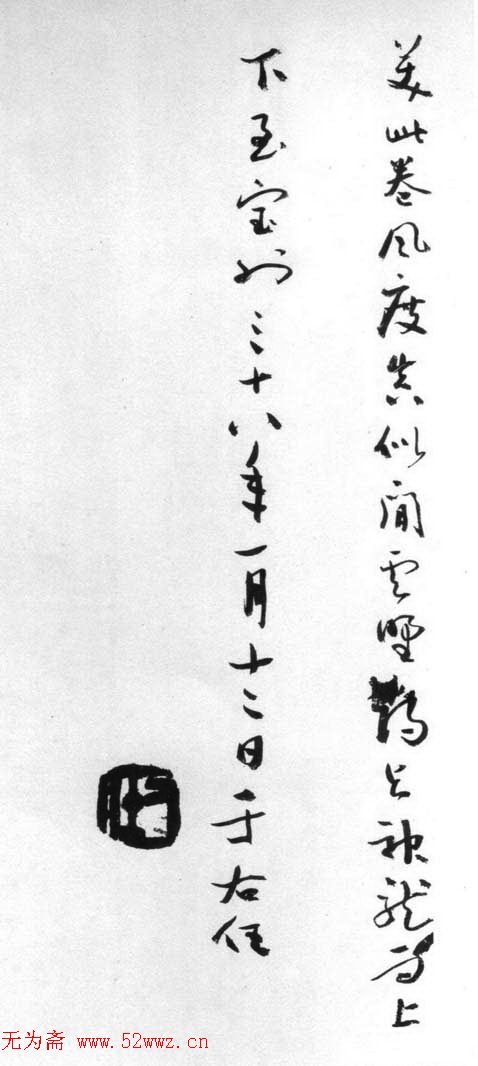 美此卷风度真似閒云野鹤与神龙上
下至宝也三十八年一月十二日于右任
无为斋 www.52wwz.cn